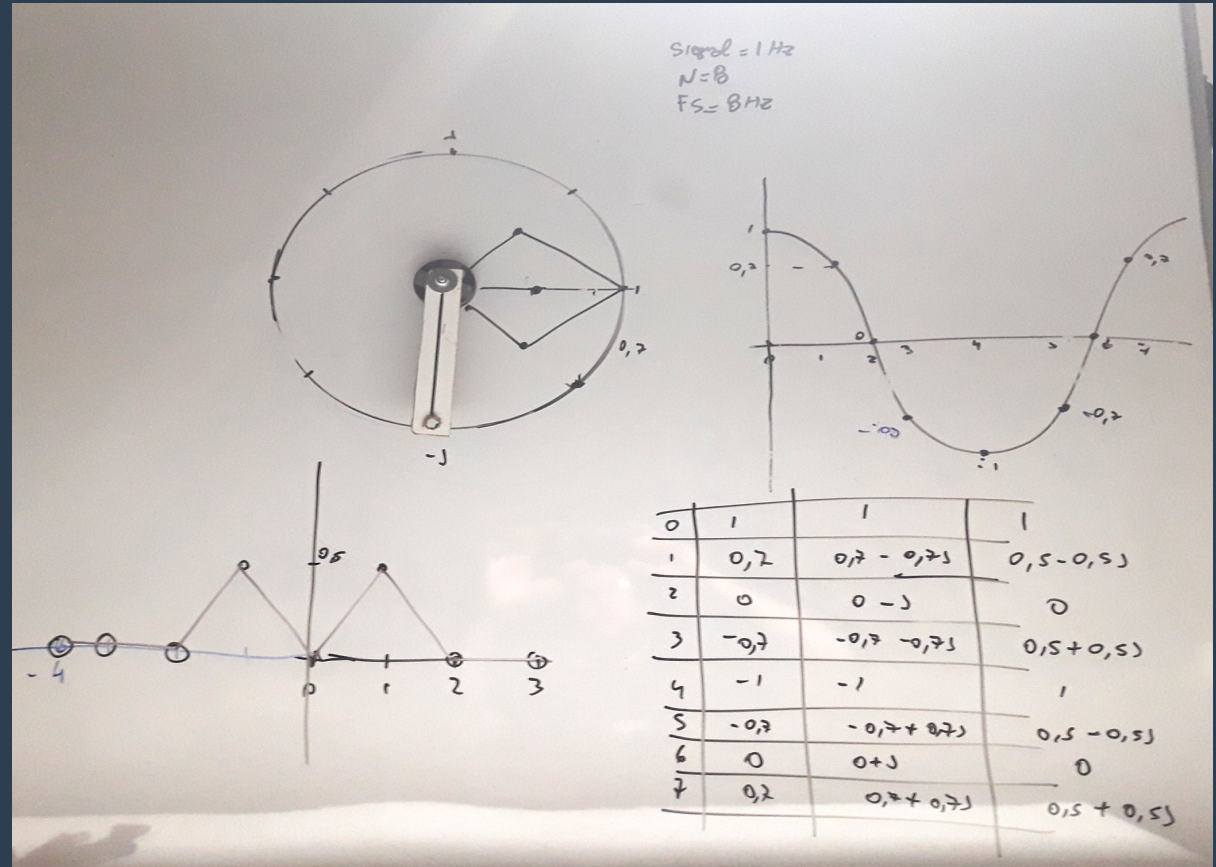 Signal = 1 Hz
N=8
FS= 8HZ
1
0,7
-J
1
0,7
0
0
1
2
3
4
5
6
7
0,7
-0,7
-1
0,5
-4
0
1
2
3
0 1 1 1
1 0,7 0,7 - 0,7J 0,5-0,5J
2 0 0 - J 0
3 -0,7 -0,7 -0,7J 0,5+0,5J
4 -1 -1 1
5 -0,7 -0,7+0,7J 0,5-0,5J
6 0 0+J 0
7 0,7 0,7+0,7J 0,5 + 0,5J